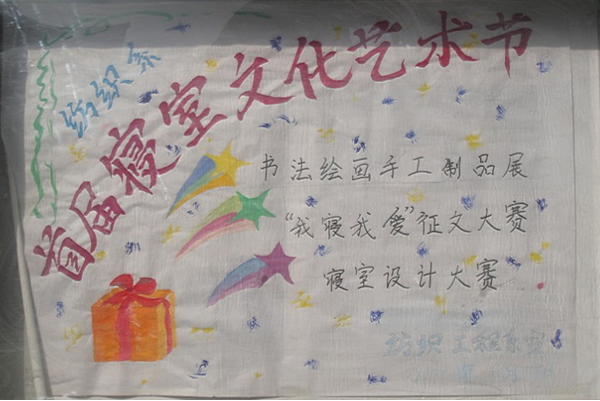 纺织系
首届寝室文化艺术节
书法绘画手工制品展
“我寝我爱”征文大赛
寝室设计大赛
纺织工程系宣